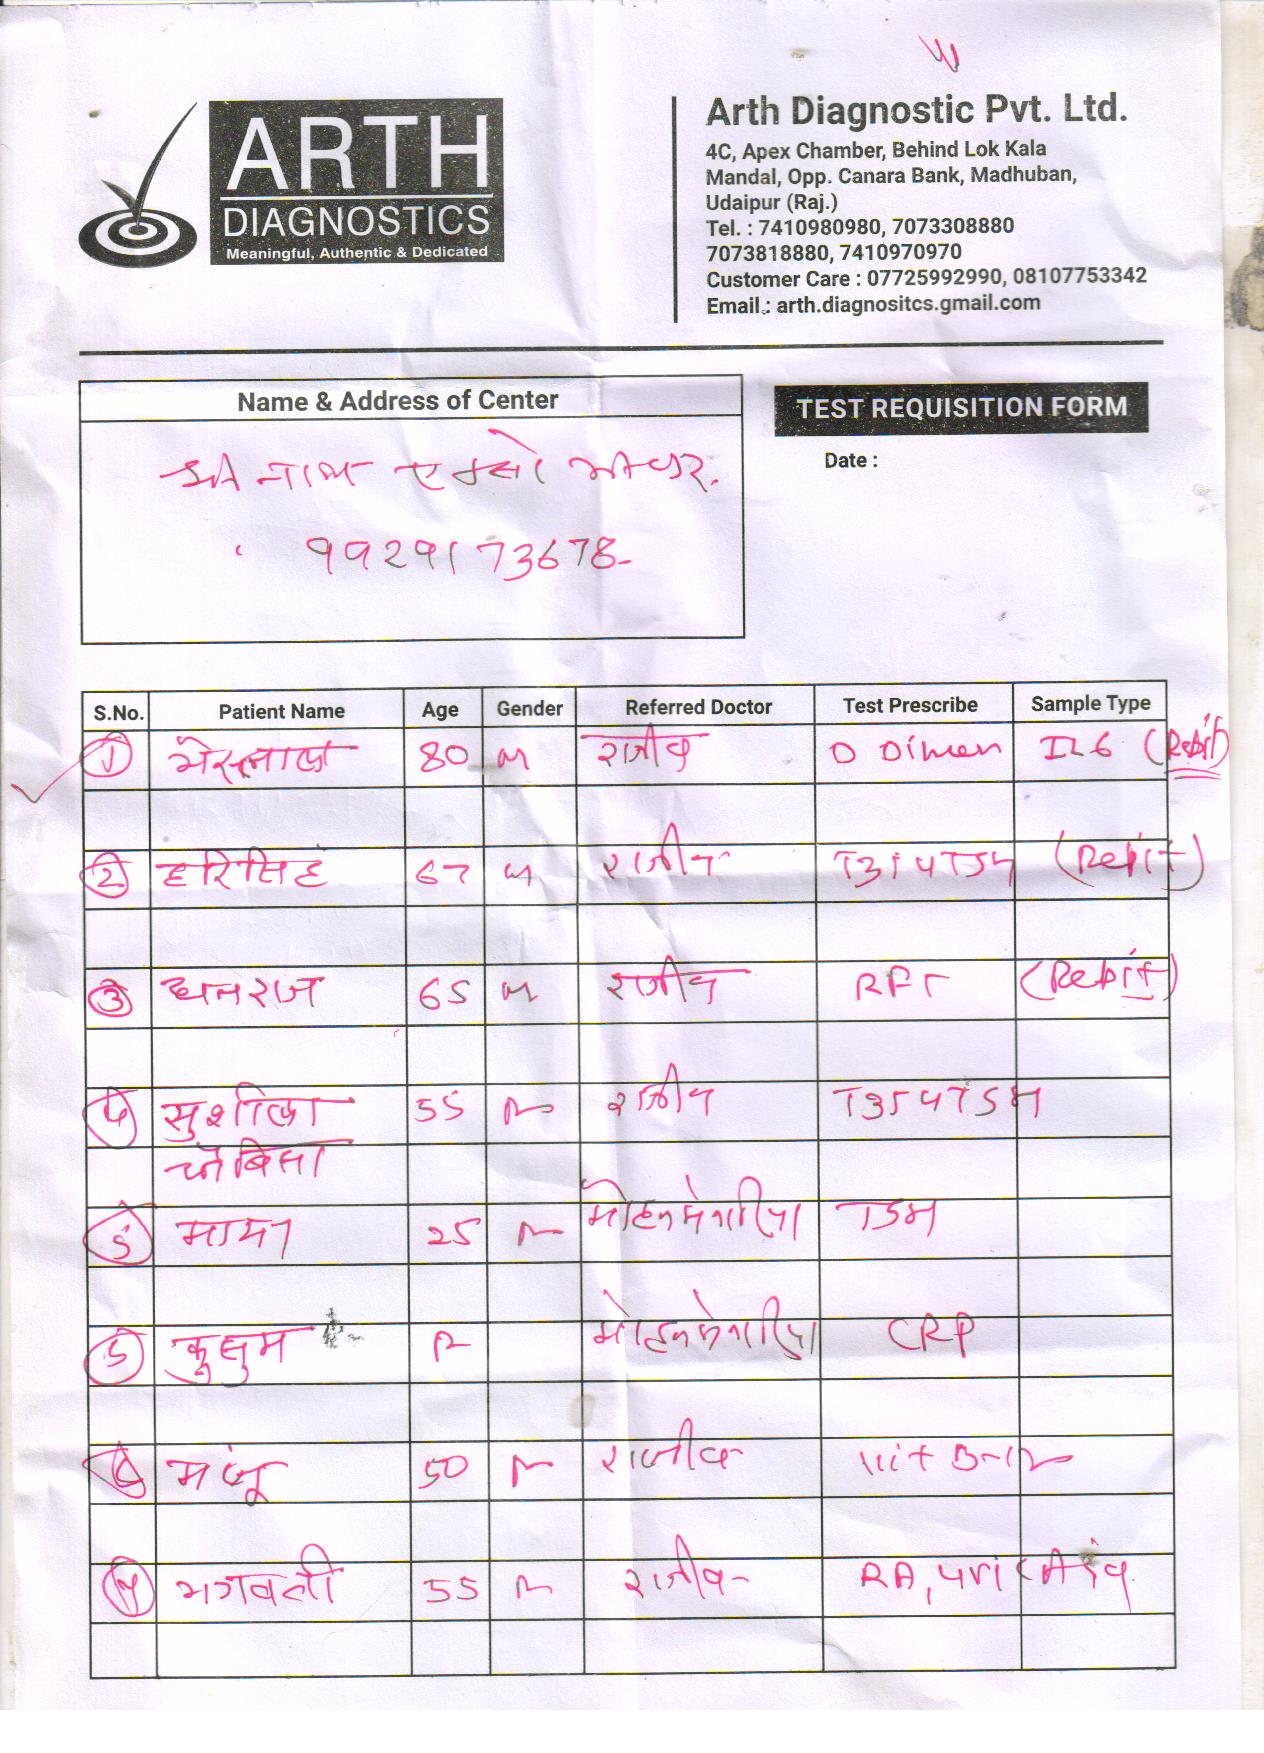 ARTH
DIAGNOSTICS
Meaningful, Authentic & Dedicated
Arth Diagnostic Pvt. Ltd.
4C, Apex Chamber, Behind Lok Kala
Mandal, Opp. Canara Bank, Madhuban,
Udaipur (Raj.)
Tel. : 7410980980, 7073308880
7073818880, 7410970970
Customer Care : 07725992990, 08107753342
Email : arth.diagnositcs.gmail.com
Name & Address of Center
TEST REQUISITION FORM
Date :
श्री नाथ
9929173678
S.No. Patient Name Age Gender Referred Doctor Test Prescribe Sample Type
1 80 m राजीव D Dimer IL6 (Repit)
2 हरिसिंह 67 m राजीव T3T4TSH (Repit)
3 धनराज 65 m राजीव RFT (Repit)
4 सुशीला 55 राजीव T3T4TSH
चौबिसा
5 माया 25 TSH
5 कुसुम CRP
6 मंजू 50 राजीव Vit B-12
7 भगवती 55 राजीव RA, uric